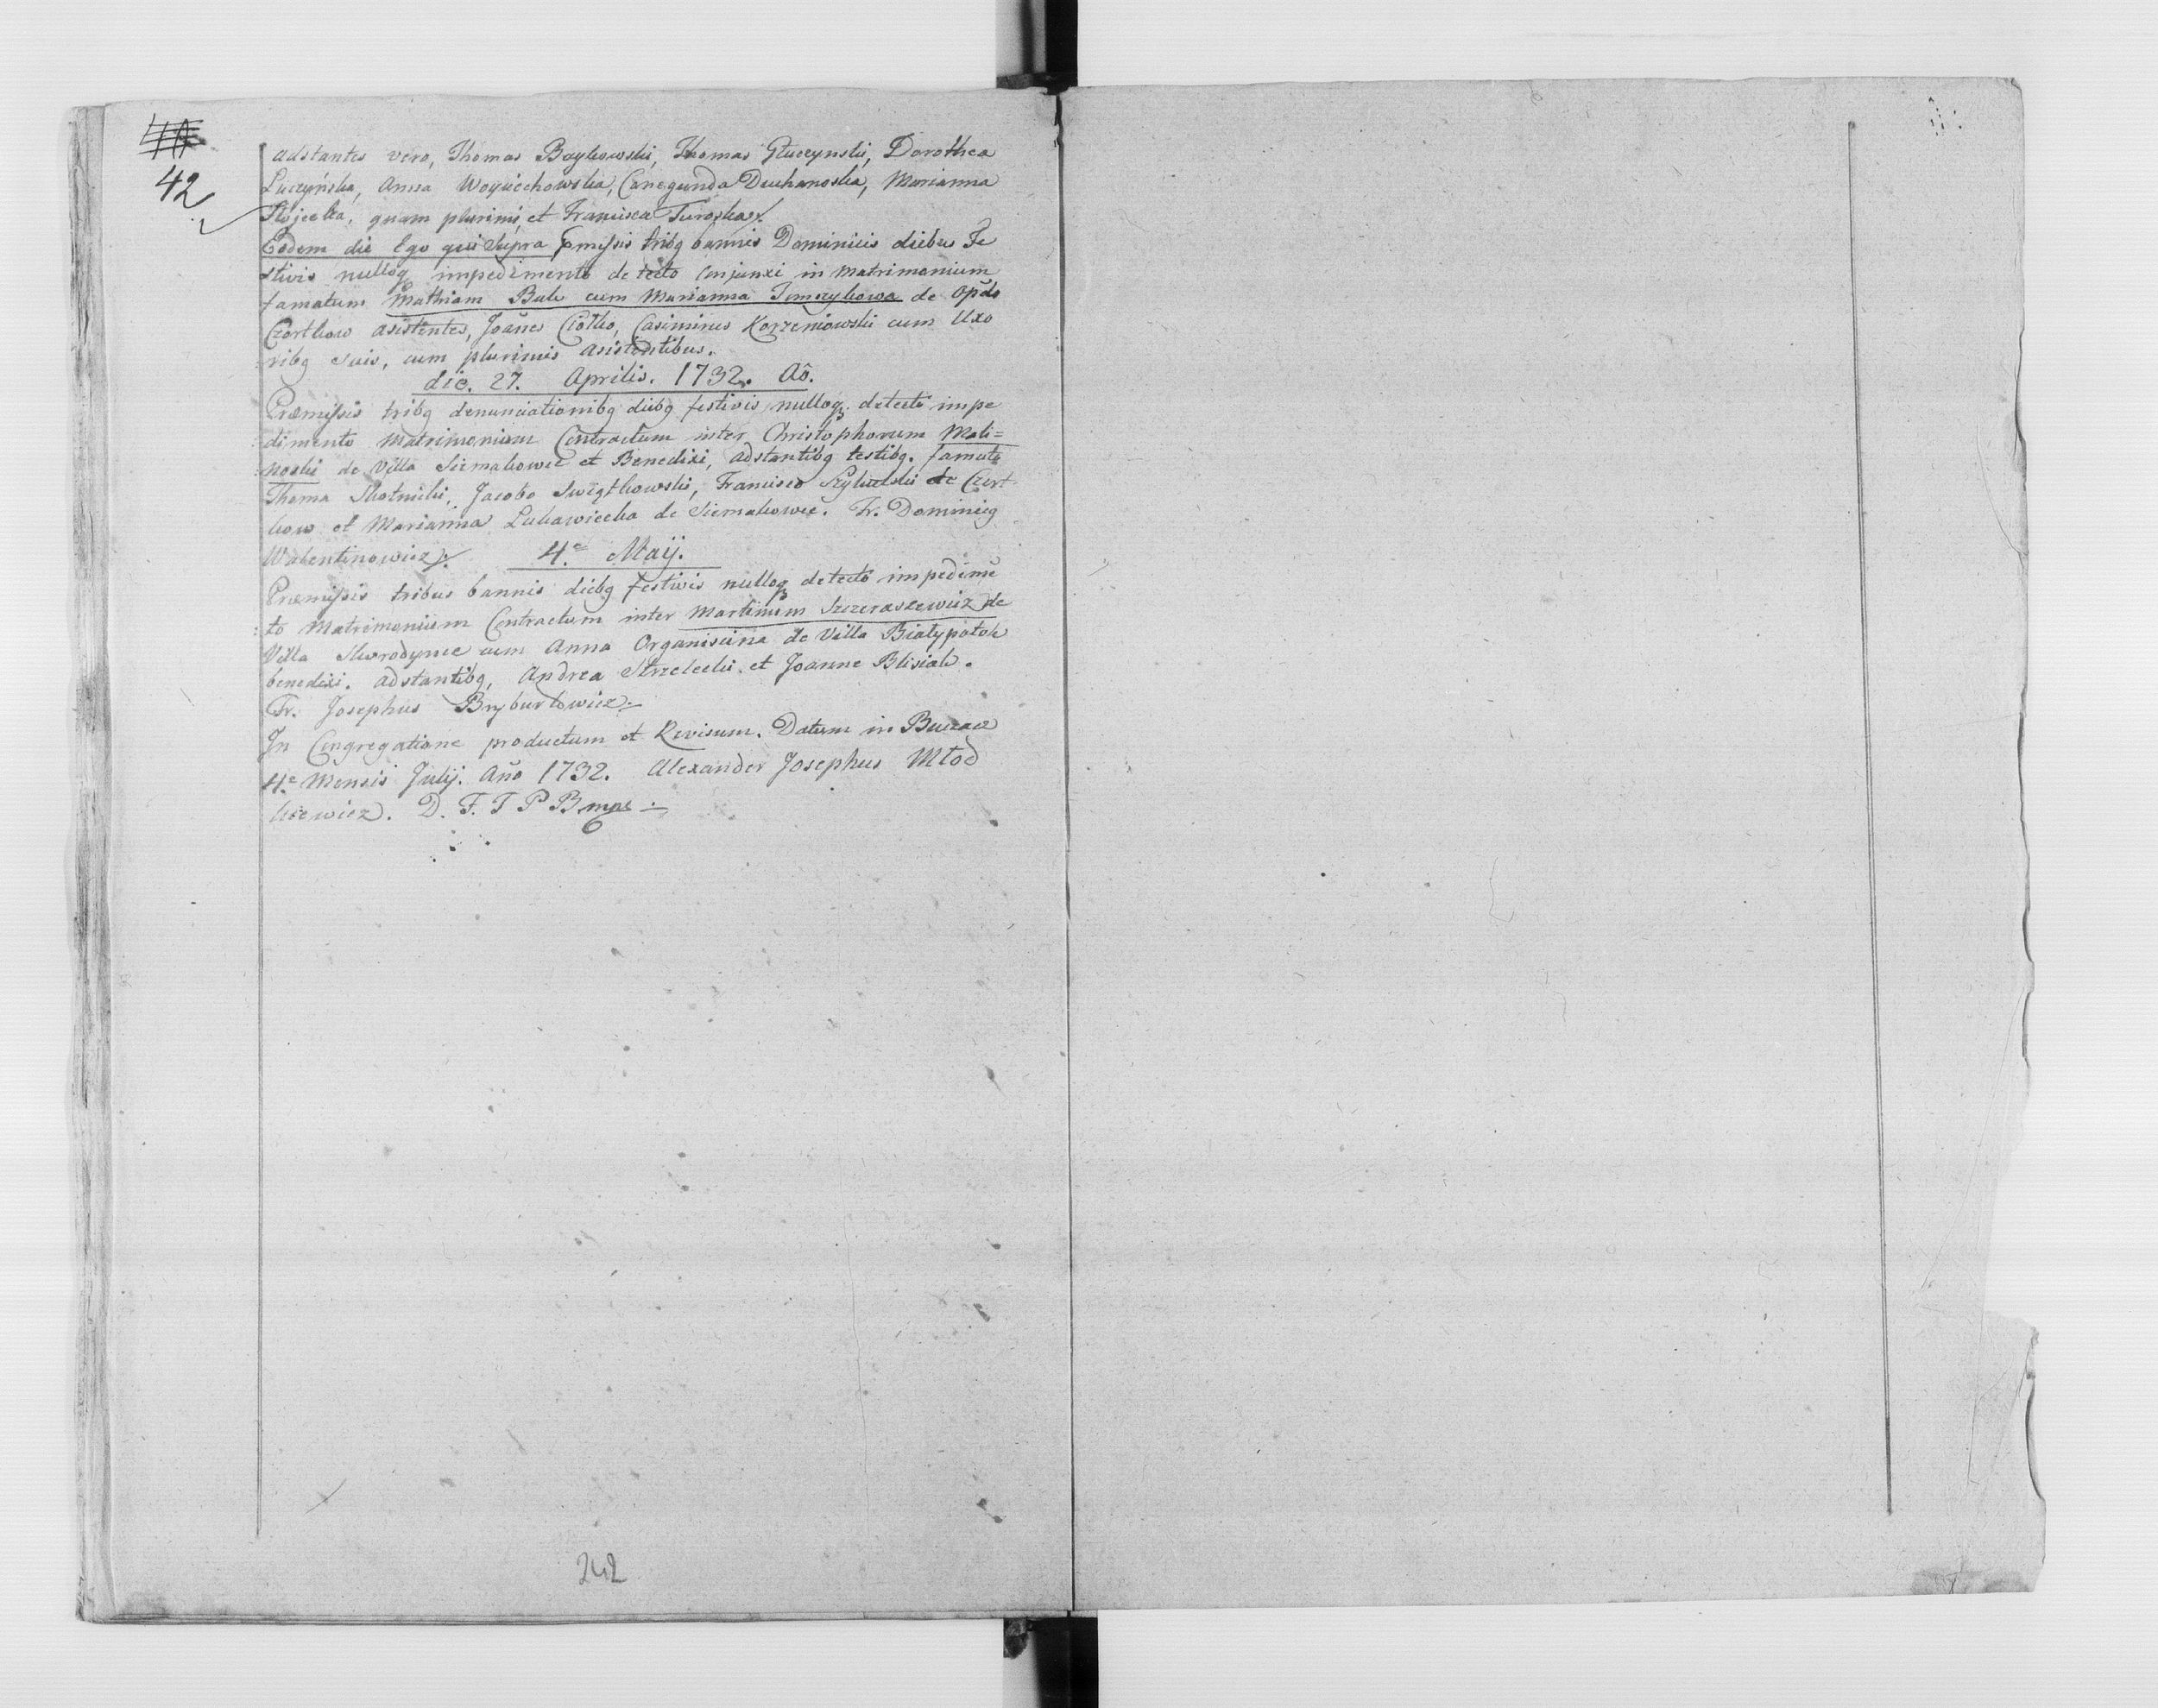 42
adstantes vero, Thomas Baykowski, Thomas Głuczynski, Dorothea
Luczyńska, Anna Woyciechowska, Cunegunda Duchanoska, Marianna
quam plurimi, et Francisca Turoska.
Eodem die Ego qui Supra pmissis tribq bannis Dominicis diebus Fe
stivis nulloq impedimento detecto Conjunxi in Matrimonium
famatum Mathiam Bak cum Marianna Tomczykowa de Opdo
Czortkow asistentes, Joanes Ciołko, Casimirus Korzeniowski cum Uxo
ribq suis, cum plurimis asistentibus.
die. 27. Aprilis. 1732. Aô.
Præmissis tribq denunciationibq diebq festivis nulloq detecto impe
dimento Matrimonium Contractum inter Christophorum Mali=
noski de Villa Siemakowce et Benedixi, adstantibq testibq. famato
Thoma Skotnicki, Jacobo Swiątkowski, Francisco de Czort
kow et Marianna Lukawiecka de Siemakowce. Fr. Dominicq
Walentinowicz.
4ta Maij.
Præmissis tribus bannis diebq festivis nulloq detecto impedime
to Matrimonium Contractum inter Martinum Szczeraszewicz de
Villa Skorodynce cum Anna Organiscina de Villa Białypotok
benedixi. adstantibq, Andrea Strzelecki et Joanne Blisiak.
Fr. Josephus Bryburtowicz.
In Congregatione productum et Revisum. Datum in Buczacz
4ta Mensis Julij. Año 1732. Alexander Josephus Młod
kiewicz. D. F. T P B mpe
242